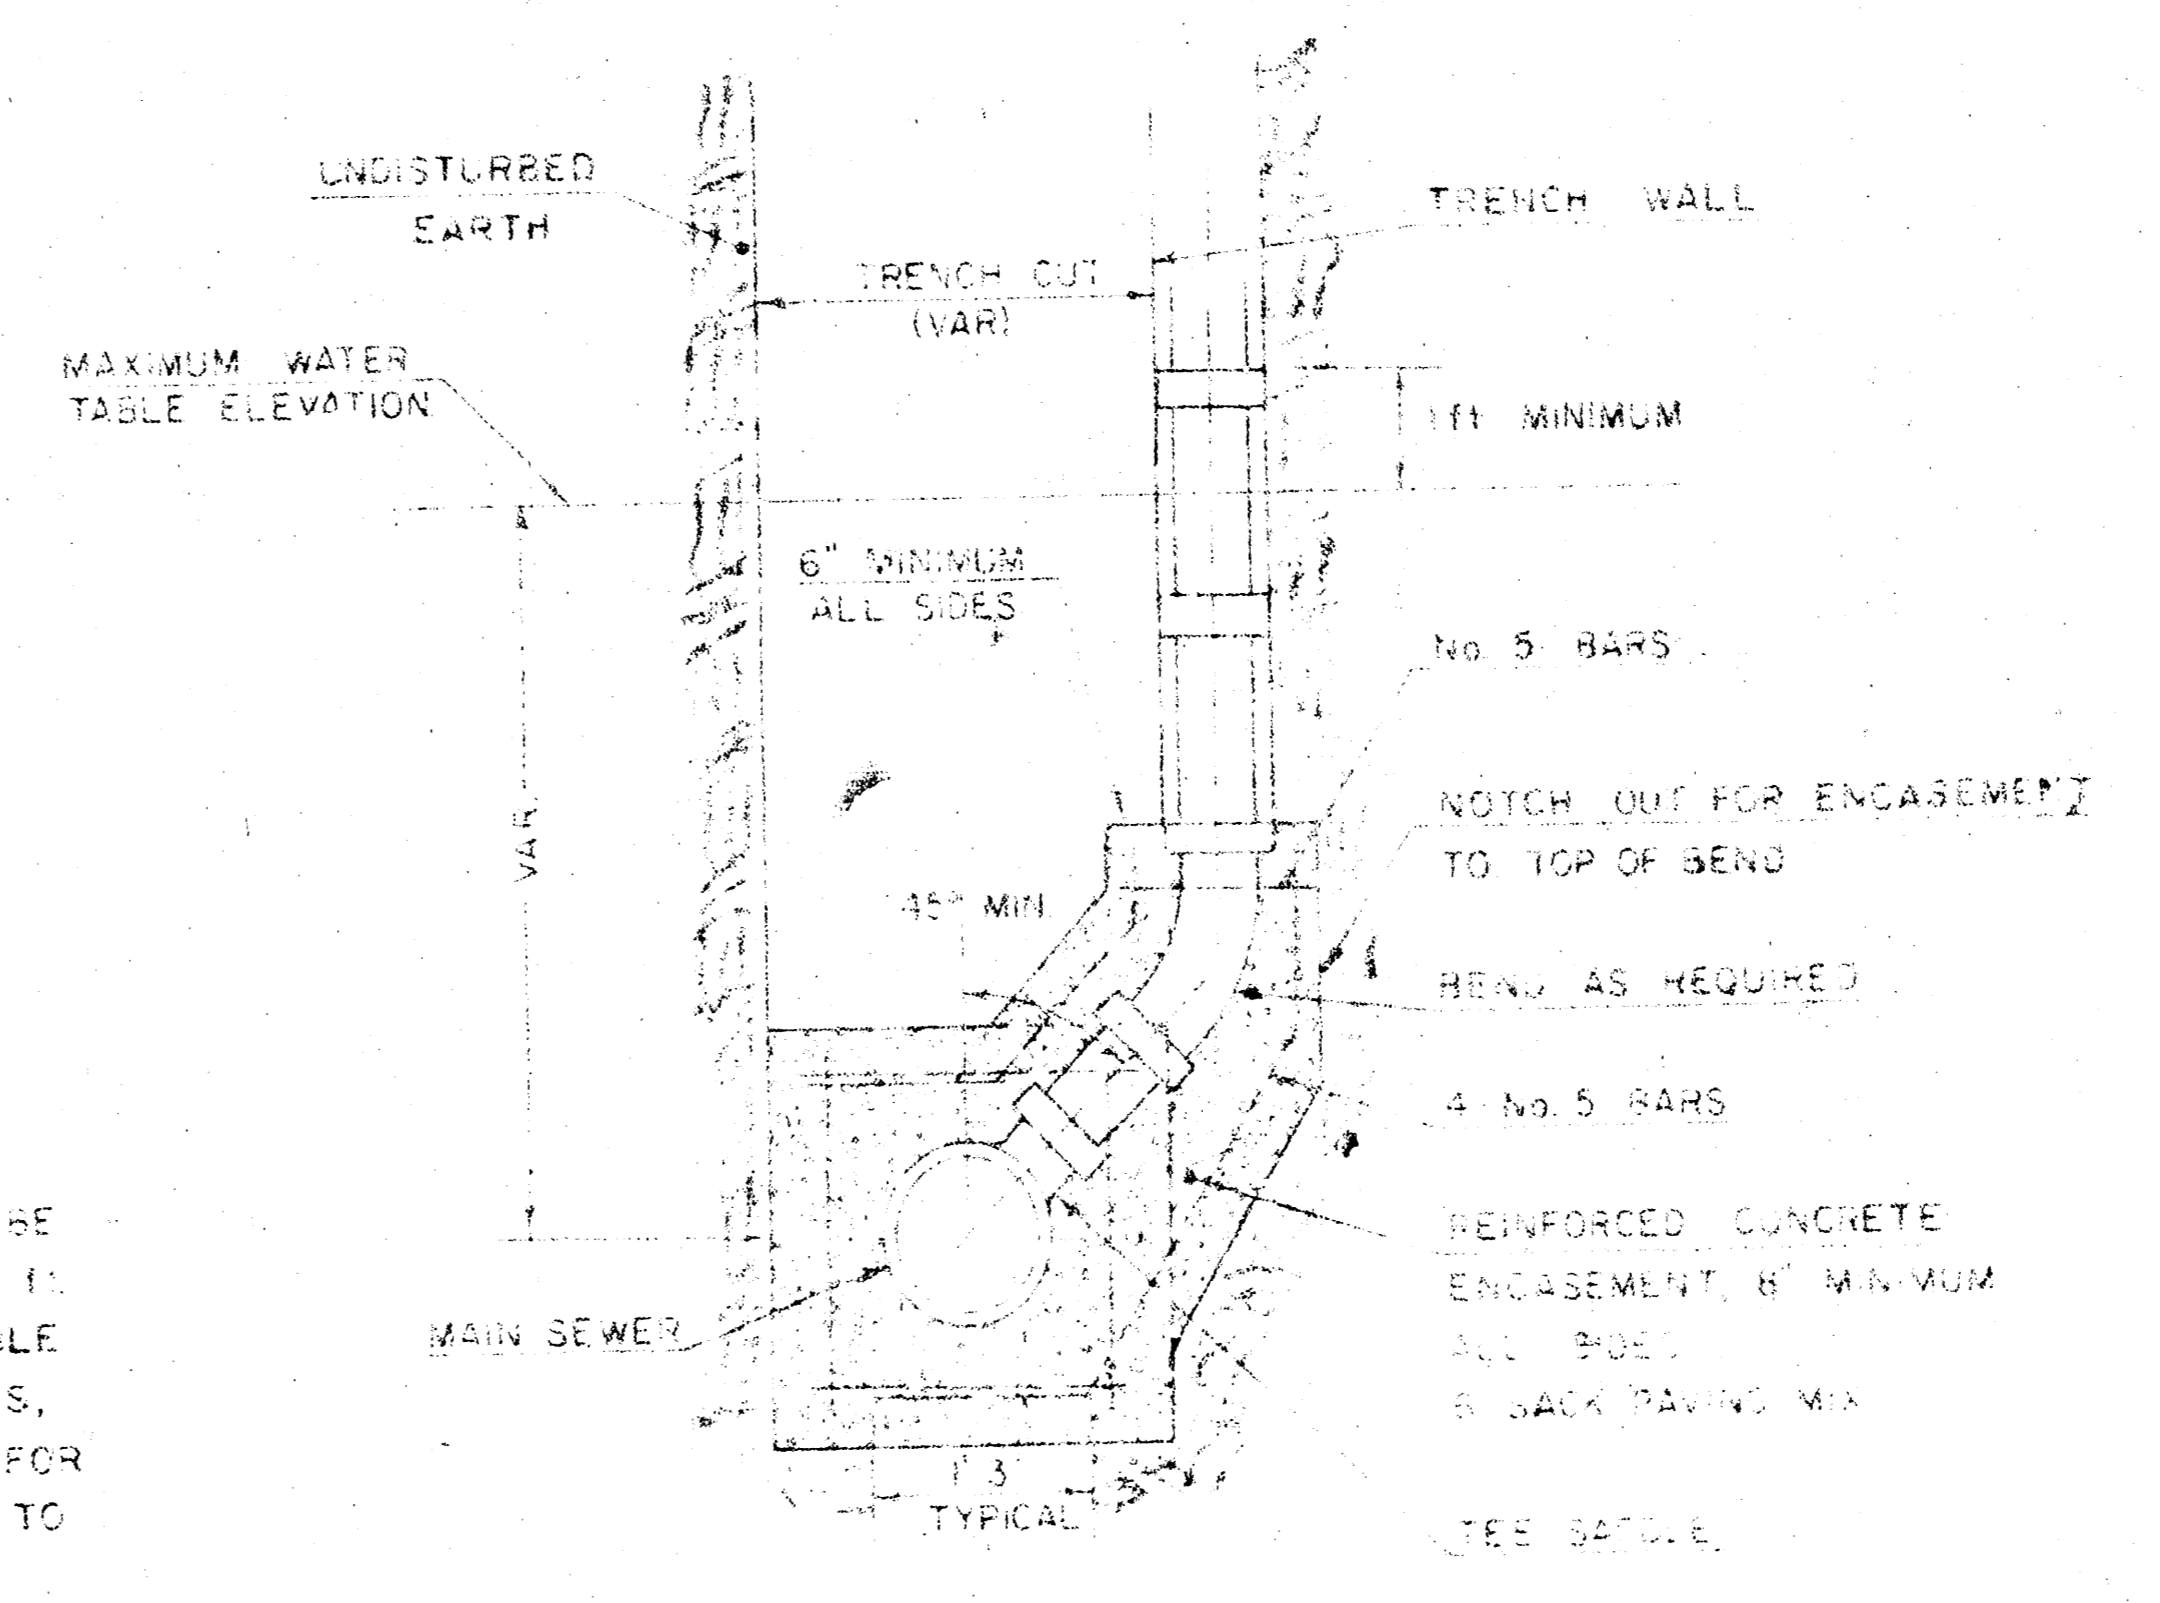 UNDISTURBED
EARTH
TRENCH WALL
TRENCH CUT
(VAR)
MAXIMUM WATER
TABLE ELEVATION
1 ft MINIMUM
6" MINIMUM
ALL SIDES
No. 5 BARS
NOTCH OUT FOR ENCASEMENT
TO TOP OF BEND
VAR.
45° MIN.
BEND AS REQUIRED
4 No. 5 BARS
REINFORCED CONCRETE
ENCASEMENT, 8" MINIMUM
ALL SIDES
6 SACK PAVING MIX
MAIN SEWER
TYPICAL
TEE SADDLE
BE
LE
S,
FOR
TO